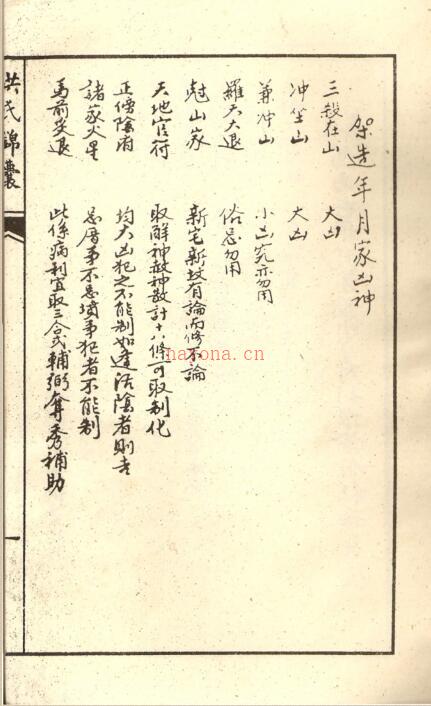 架造年月家凶神
三殺在山 大凶
冲坐山 大凶
兼冲山 小凶究亦勿用
羅天大退 俗忌勿用
尅山家 新宅新坟有論而修不論
天地官符 取解神赦神数計十八條可取制化
正傍陰府 均大凶犯之不能制如造活陰者則吉
諸家火星 忌厝事不忌墳事犯者不能制
馬前炎退 此係病利宜取三合式輔弼奪秀補助
洪氏錦囊
一
nayona.cn